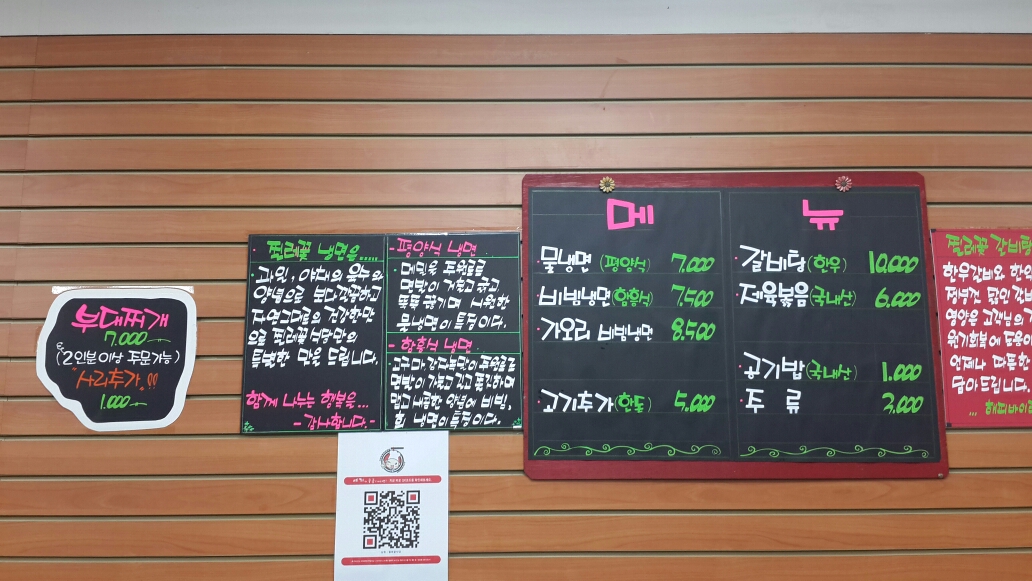 부대찌개
7,000
(2인분이상 주문가능)
사리추가!!
1,000
찔레꽃 냉면은.....
과일, 야채의 육수와
양념으로 보다 깔끔하고
자연그대로의 건강한 맛
으로 찔레꽃 식당만의
특별한 맛을 드립니다.
함께 나누는 행복을...
- 감사합니다. -
- 평양식 냉면
메밀을 주원료로
면발이 거칠고 굵고
뚝뚝 끊기며 시원한
물냉면이 특징이다.
- 함흥식 냉면
고구마 감자녹말이 주원료로
면발이 가늘고 길고 쫄깃하며
맵고 새콤한 양념에 비빔,
회 냉면이 특징이다.
메뉴
물냉면 (평양식) 7,000
비빔냉면 (함흥식) 7,500
가오리 비빔냉면 8,500
고기추가 (한돈) 5,000
갈비탕 (한우) 10,000
제육볶음 (국내산) 6,000
공기밥 (국내산) 1,000
주 류 3,000
찔레꽃 갈비탕
한우갈비와 한약
정성껏 닳인 갈비
영양은 고객님의 기
원기회복에 도움이
언제나 따뜻한
담아드립니다.
... 해피바이